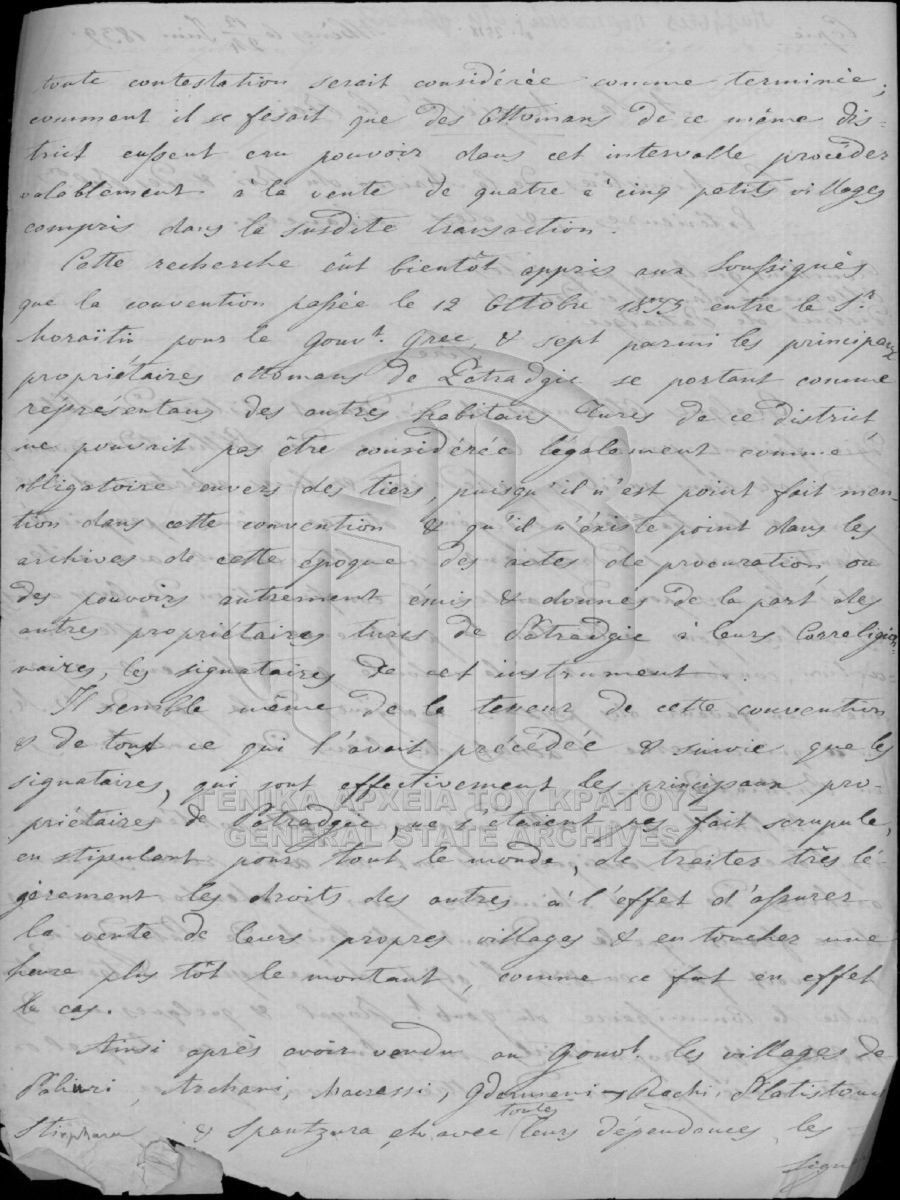 toute contestation serait considérée comme terminée;
comment il se fesait que des Ottomans de ce même dis-
trict eussent cru pouvoir dans cet intervalle procéder
valablement à la vente de quatre à cinq petits villages
compris dans la susdite transaction.
Cette recherche eût bientôt appris aux Soussignés
que la convention passée le 12 Octobre 1833 entre le Sr.
Moraïtin pour le Gouvt. Grec, & sept parmi les principaux
propriétaires ottomans de Patradgic se portant comme
représentans des autres habitans Turcs de ce district
ne pouvait pas être considérée légalement comme
obligatoire envers des tiers, puisqu'il n'est point fait men-
tion dans cette convention & qu'il n'éxiste point dans les
archives de cette époque des actes de procuration ou
des pouvoirs autrement émis & donnés de la part des
autres propriétaires turcs de Patradgic à leurs Correligion-
naires, les signataires de cet instrument.
Il semble même de la teneur de cette convention
& de tout ce qui l'avait précédée & suivie que les
signataires, qui sont effectivement les principaux pro-
priétaires de Patradgic, ne s'étaient pas fait scrupule,
en stipulant pour tout le monde, de traiter très lé-
gèrement les droits des autres à l'effet d'assurer
la vente de leurs propres villages & en toucher une
heure plus tôt le montant, comme ce fut en effet
le cas.
Ainsi après avoir vendu au Gouvt. les villages de
Paliuri, Archani, Macrassi, Gdermeni, Rachi, Platistomo
& Spantzura avec toutes leurs dépendances, les
ΓΕΝΙΚΑ ΑΡΧΕΙΑ ΤΟΥ ΚΡΑΤΟΥΣ
GENERAL STATE ARCHIVES